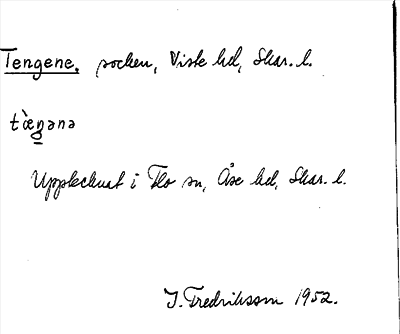 Tengene. socken, Viste hd, Skar. l.
tæ̀ŋənə
Upptecknat i Flo sn, Åse hd, Skar. l.
I. Fredriksson 1952.